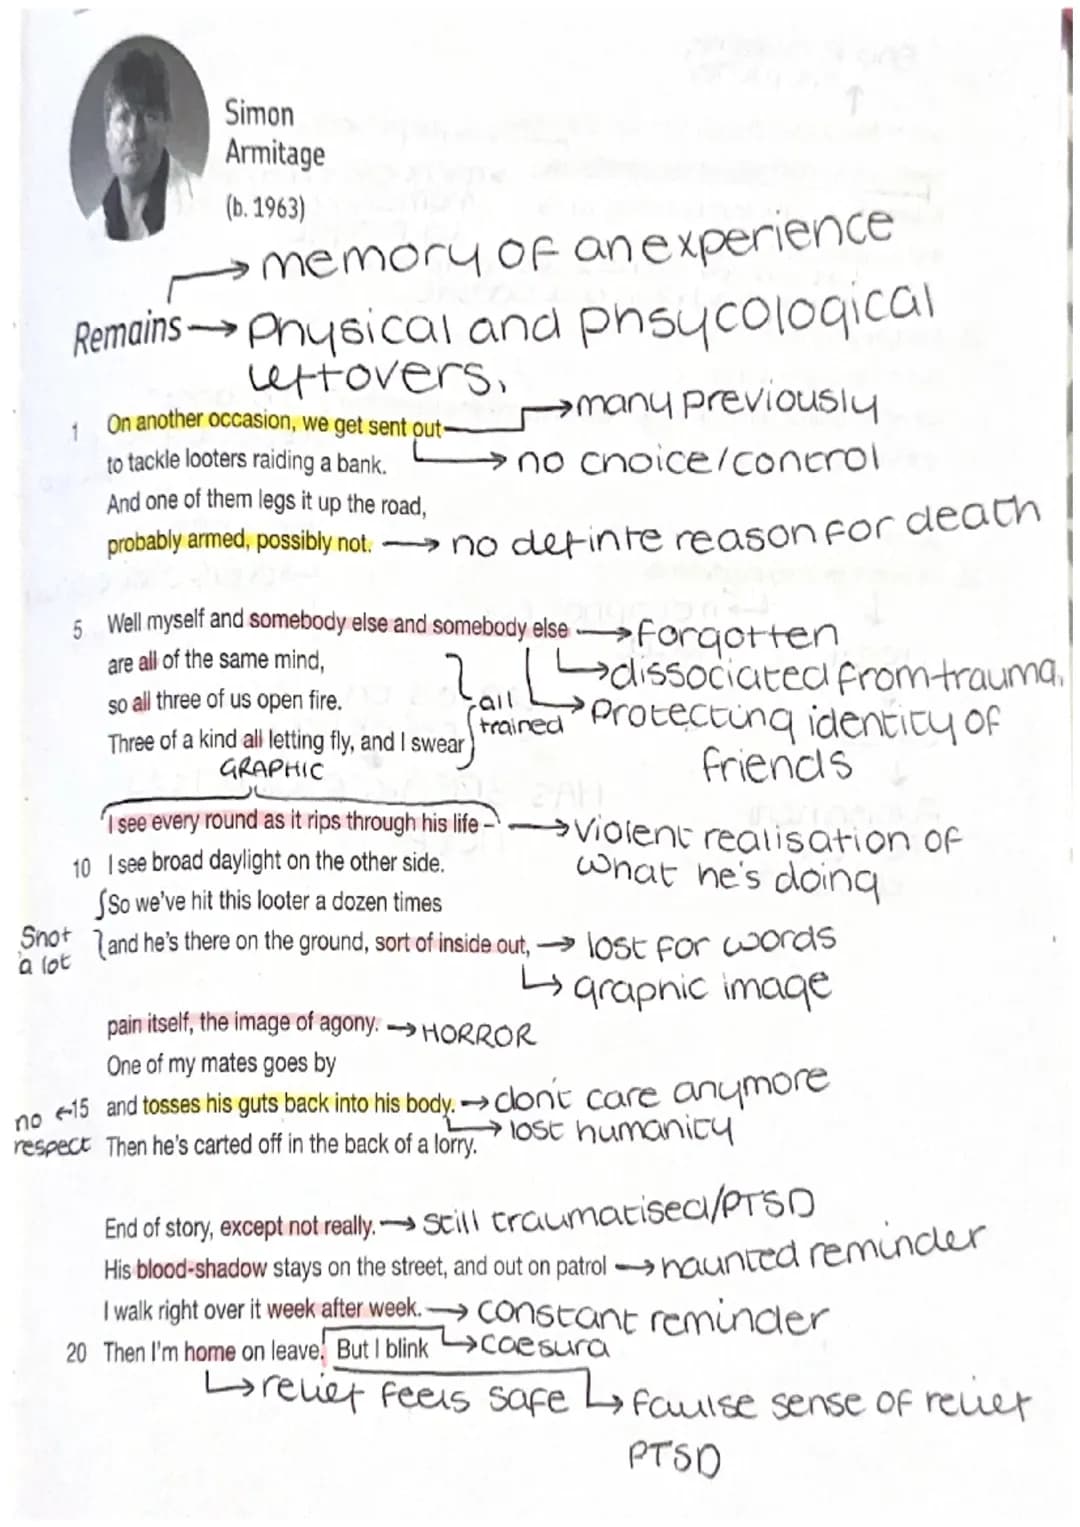 Simon
Armitage
(b. 1963)
memory of an experience
Remains → Physical and phsycological
leftovers.
→ many previously
1 On another occasion, we get sent out
to tackle looters raiding a bank. → no choice/control
And one of them legs it up the road,
probably armed, possibly not. → no definte reason for death
5 Well myself and somebody else and somebody else → forgotten
are all of the same mind, → dissociated from trauma.
so all three of us open fire. all trained → Protecting identity of
Three of a kind all letting fly, and I swear friends
GRAPHIC
I see every round as it rips through his life – → violent realisation of
10 I see broad daylight on the other side. what he's doing
So we've hit this looter a dozen times
Snot a lot and he's there on the ground, sort of inside out, → lost for words
↳ graphic image
pain itself, the image of agony. → HORROR
One of my mates goes by
15 and tosses his guts back into his body. → don't care anymore
→ lost humanity
no respect Then he's carted off in the back of a lorry.
End of story, except not really. → still traumatised/PTSD
His blood-shadow stays on the street, and out on patrol → haunted reminder
I walk right over it week after week. → constant reminder
20 Then I'm home on leave. But I blink → caesura
↳ relief feels safe ↳ faulse sense of relief
PTSD